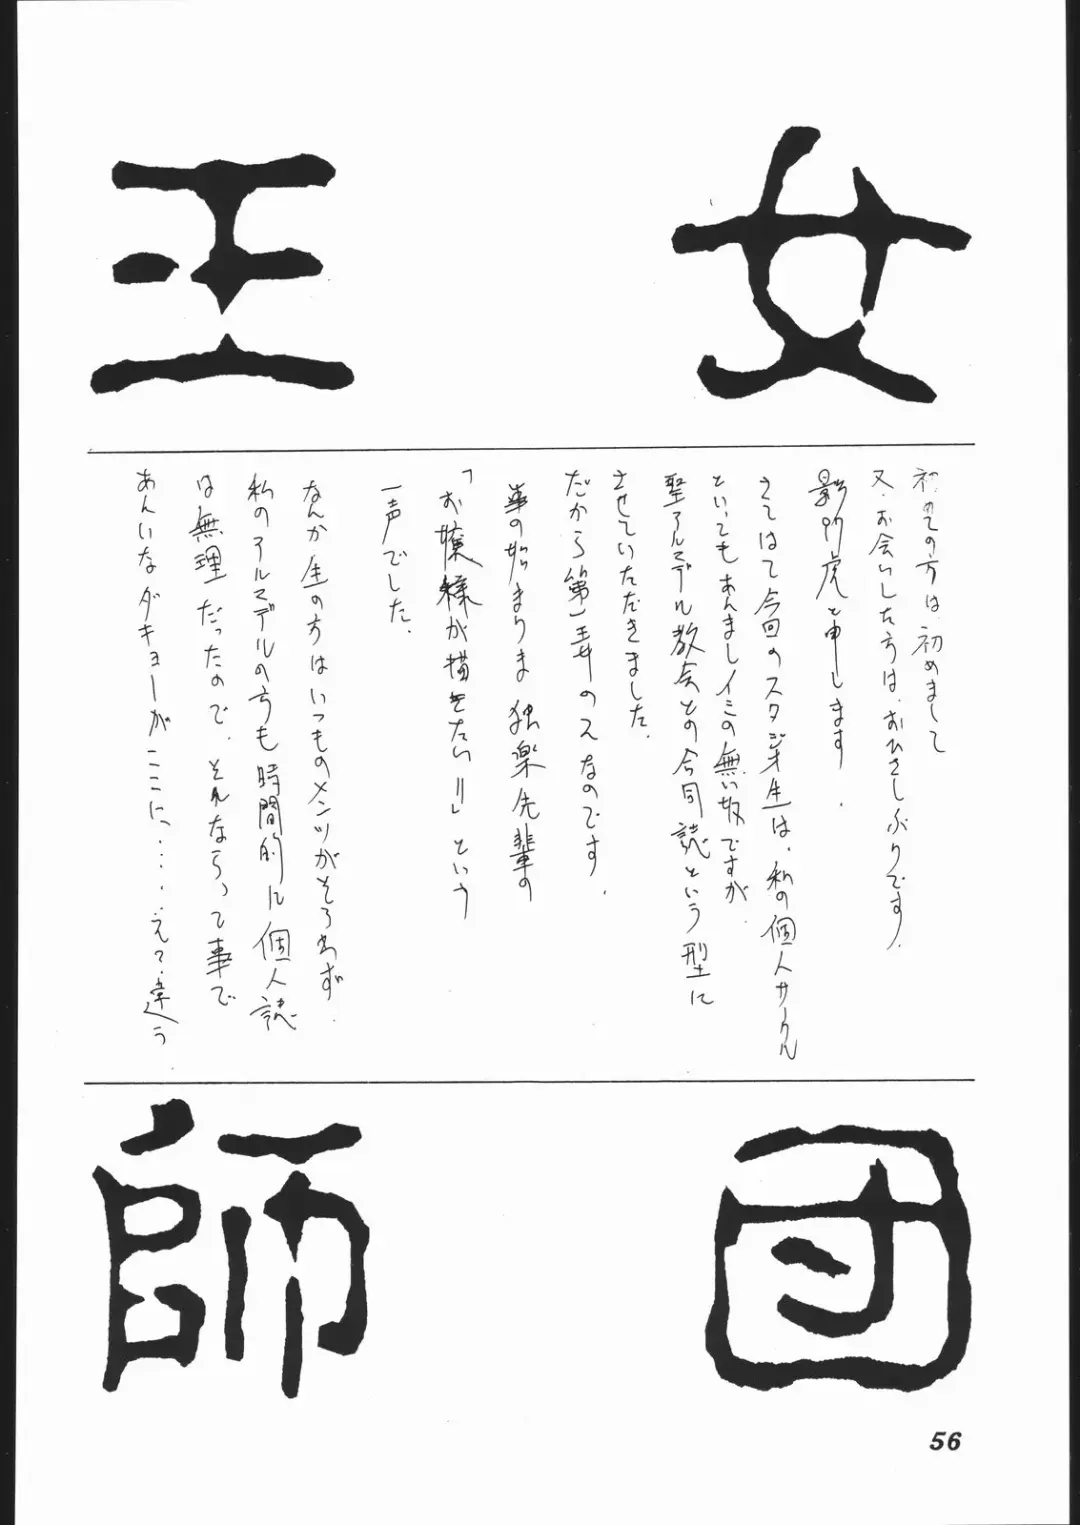 女王
初めての方は、初めまして
又、お会いした方は、おひさしぶりです。
影虎と申します。
さてはて今回のスタジオ生は、私の個人サークル
といってもあんましイミの無い奴ですが
聖アルマデル教会との合同誌という型に
させていただきました。
だから第一弄のえなのです。
事の始まりま 独楽先輩の
「お嬢様が描きたい!!」という
一声でした。
なんか生の方はいつものメンツがそろわず、
私のアルマデルの方も時間的に個人誌
は無理だったので、それならって事で
あんいなダキョーがここに、……えっ?違う
団師
56